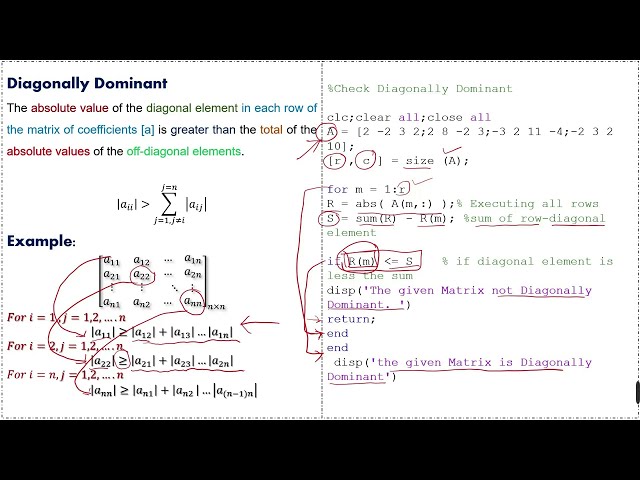 Diagonally Dominant
The absolute value of the diagonal element in each row of
the matrix of coefficients [a] is greater than the total of the
absolute values of the off-diagonal elements.
|a_ii| > ∑_{j=1,j≠i}^{j=n} |a_ij|
Example:
[a₁₁ a₁₂ … a₁ₙ
a₂₁ a₂₂ … a₂ₙ
⋮ ⋮ ⋱ ⋮
aₙ₁ aₙ₂ … aₙₙ]ₙ×ₙ
For i = 1, j = 1,2, …. n
|a₁₁| ≥ |a₁₂| + |a₁₃| … |a₁ₙ|
For i = 2, j = 1,2, …. n
|a₂₂| ≥ |a₂₁| + |a₂₃| … |a₂ₙ|
For i = n, j = 1,2, …. n
|aₙₙ| ≥ |aₙ₁| + |aₙ₂| … |a₍ₙ₋₁₎ₙ|
%Check Diagonally Dominant
clc;clear all;close all
A = [2 -2 3 2;2 8 -2 3;-3 2 11 -4;-2 3 2
10];
[r, c] = size (A);
for m = 1:r
R = abs( A(m,:) );% Executing all rows
S = sum(R) - R(m); %sum of row-diagonal
element
if R(m) <= S % if diagonal element is
less the sum
disp('The given Matrix not Diagonally
Dominant. ')
return;
end
end
disp('the given Matrix is Diagonally
Dominant')